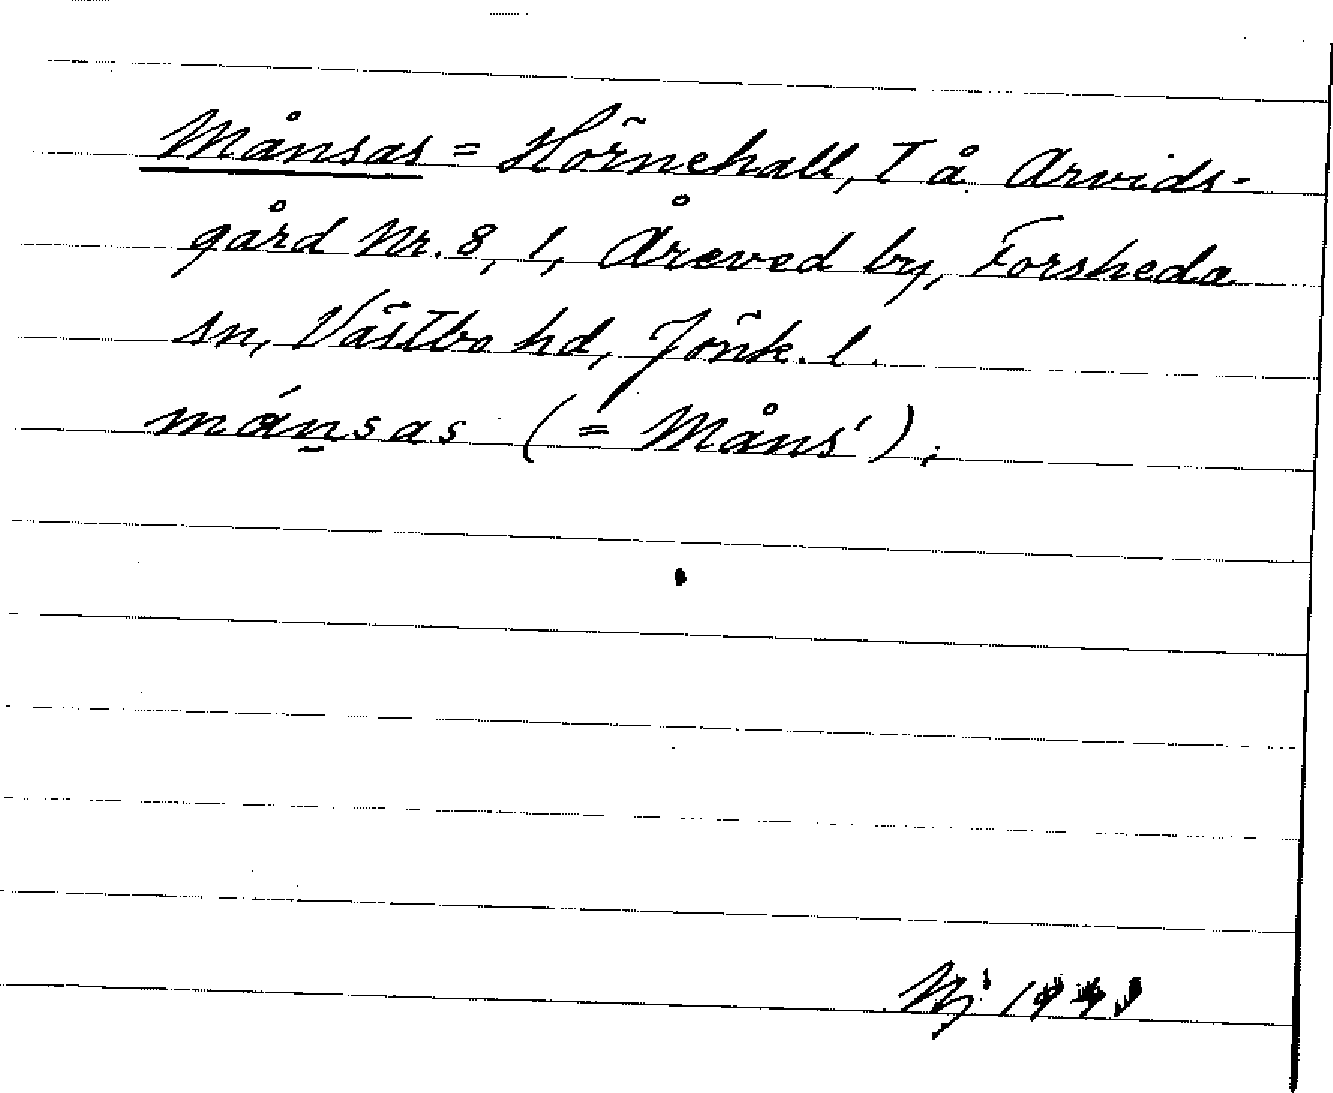 Månsas = Hörnehall, T å Arvids-
gård Nr. 8, 1, Åreved by, Forsheda
sn, Västbo hd, Jönk. l.
mánsas (= Måns').